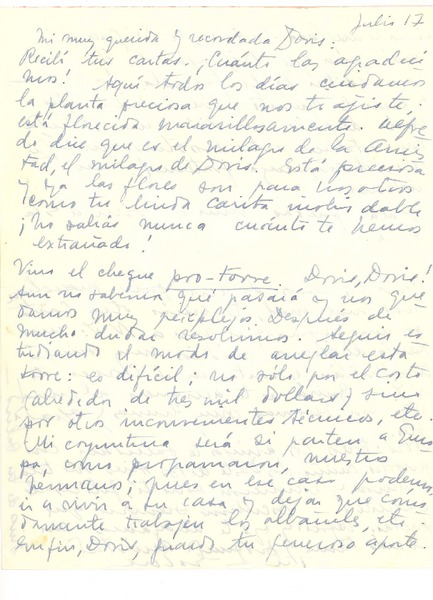 Julio 17
Mi muy querida y recordada Doris:
Recibí tus cartas. ¡Cuánto las agradeci
mos! Aquí todos los días cuidamos
la planta preciosa que nos trajiste.
está florecida maravillosamente. Alfre
do dice que es el milagro de la amis
tad, el milagro de Doris. Está preciosa
y ya las flores son para nosotros
como tu linda carita inolvidable
¡No sabrás nunca cuánto te hemos
extrañado!
Vino el cheque pro-torre. Doris, Doris!
Aun no sabemos qué pasará y nos que
damos muy perplejos. Después de
mucho dudar resolvimos. Seguir es
tudiando el modo de arreglar esta
torre: es difícil; no sólo por el costo
(alrededor de tres mil dollars) sino
por otros inconvenientes técnicos, etc.
Mi coyuntura será si parten a Euro
pa, como programaron, nuestros
hermanos; pues en ese caso podemos
ir a vivir a su casa y dejar que cómo
damente trabajen los albañiles, etc.
En fin, Doris, guardo tu generoso aporte.